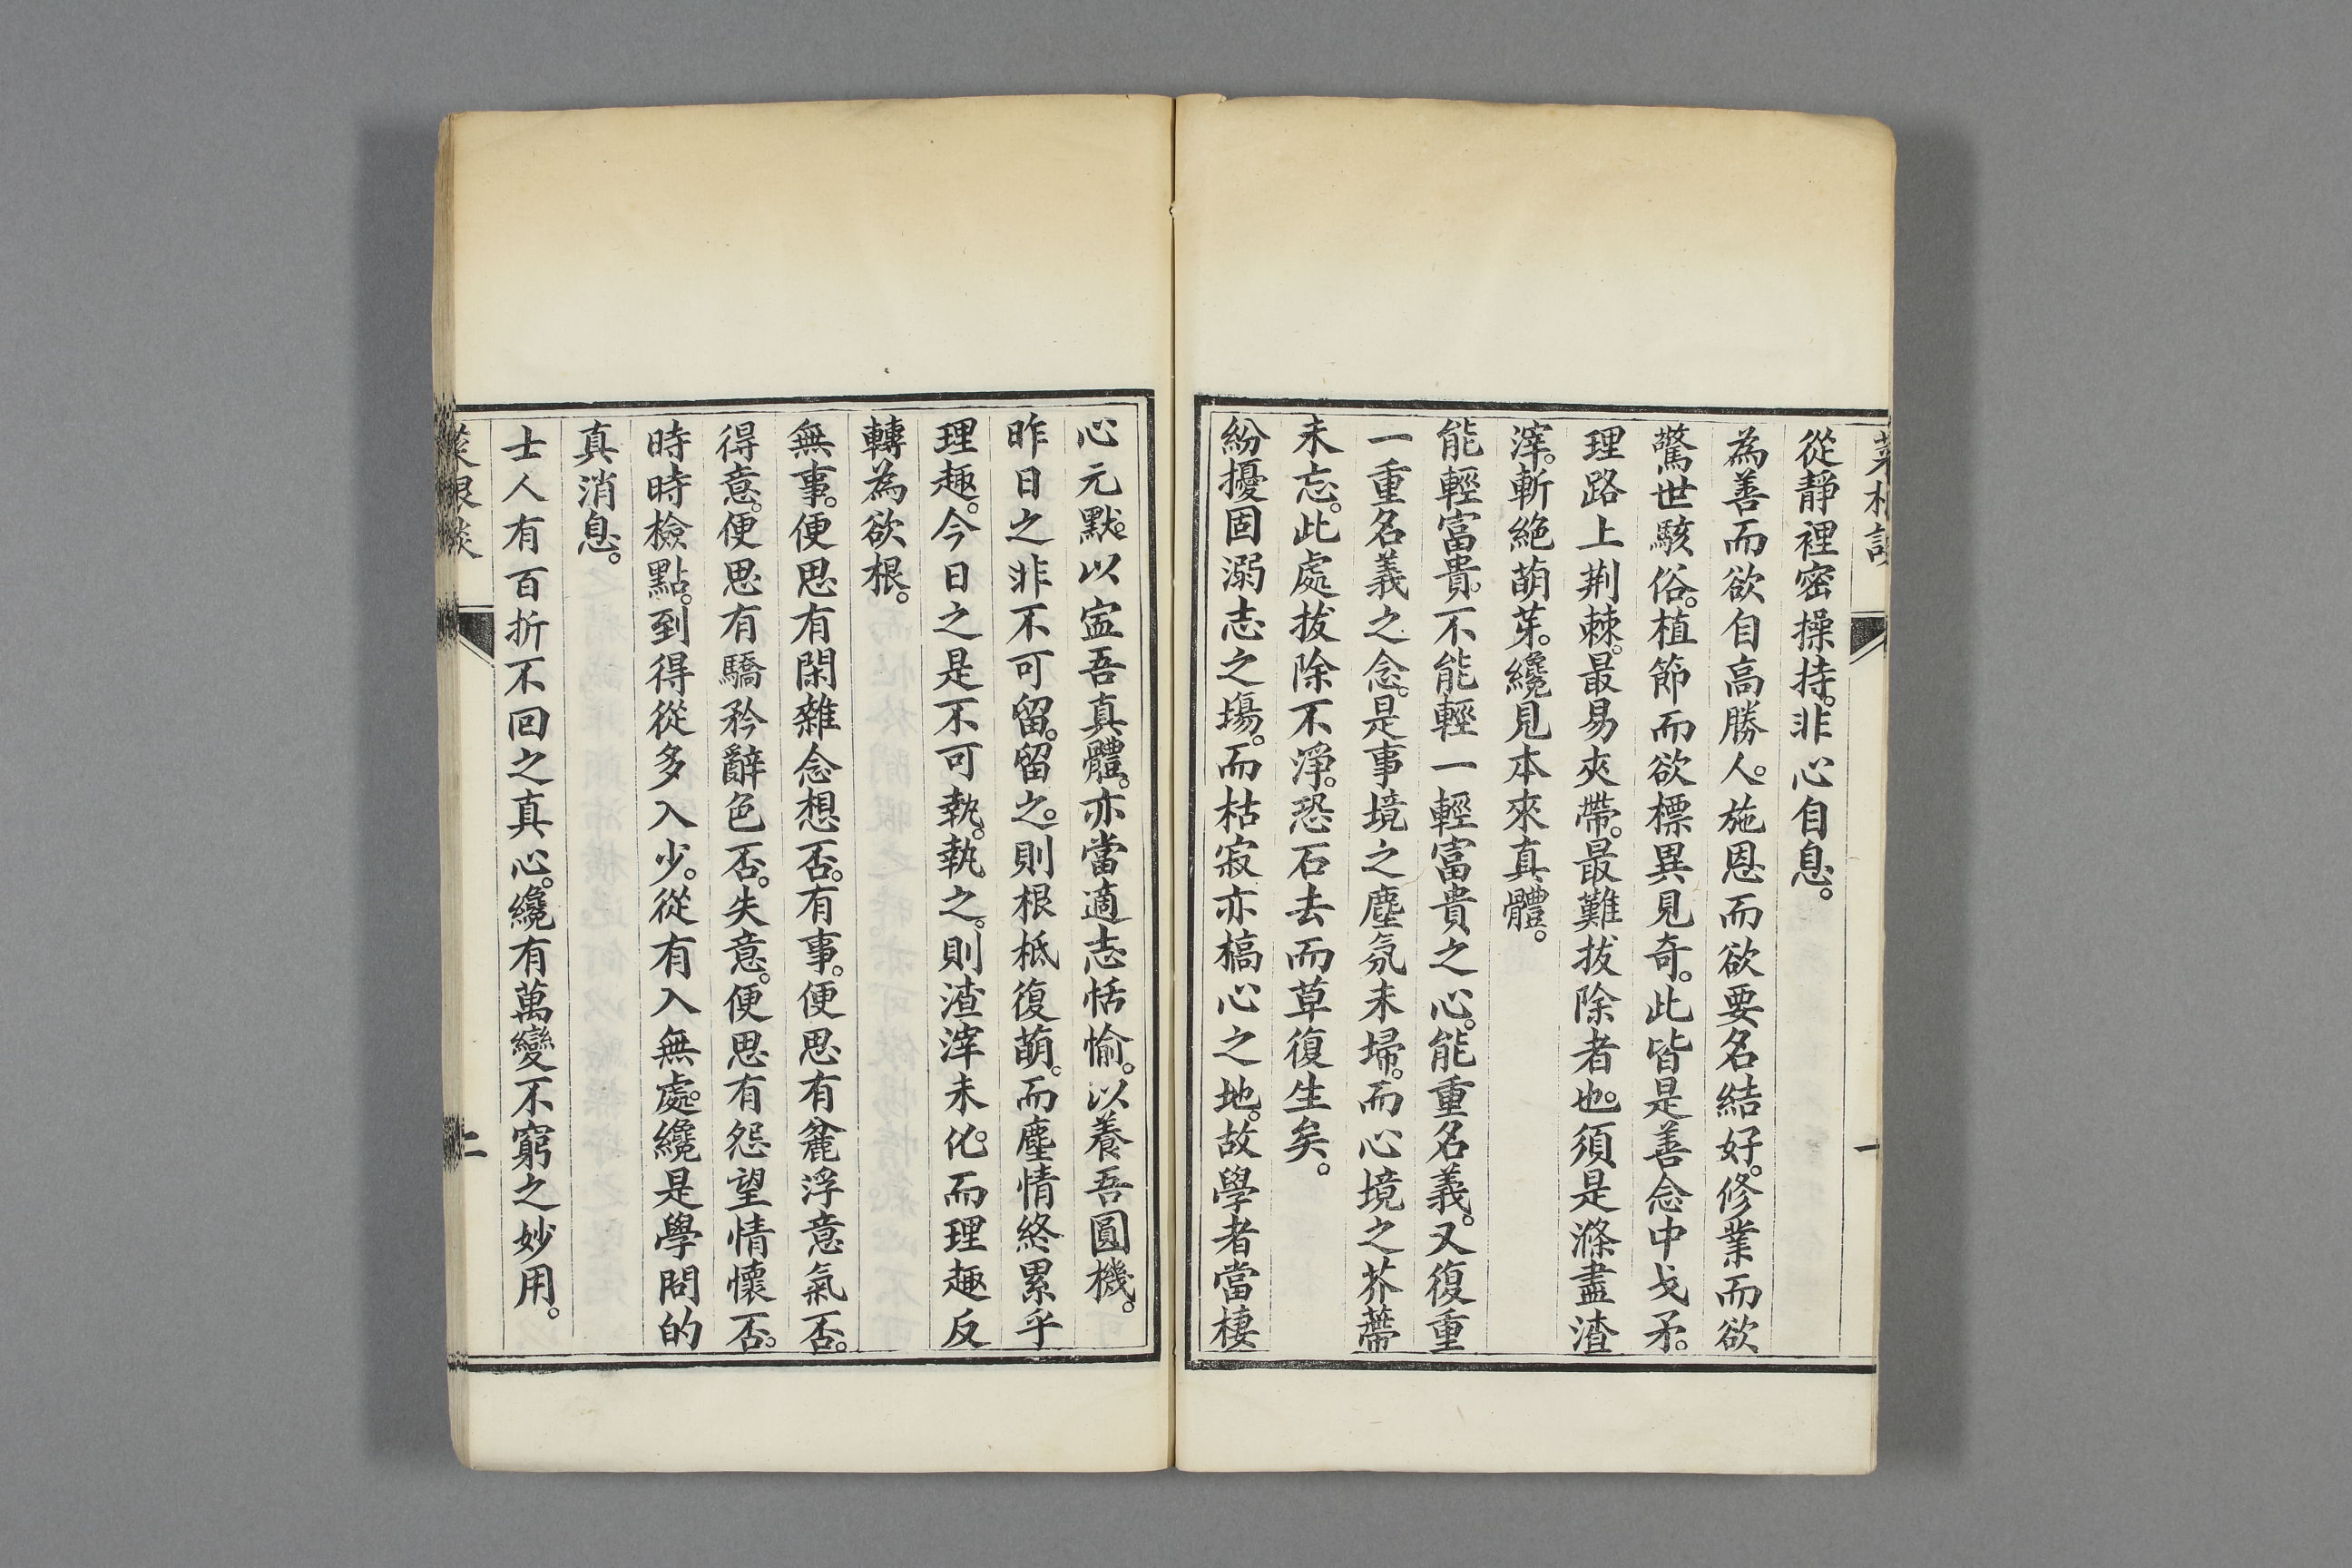 從靜裡密操持。非心自息。
為善而欲自高勝人。施恩而欲要名結好。修業而欲
驚世駭俗。植節而欲標異見奇。此皆是善念中戈矛。
理路上荆棘。最易夾帶。最難拔除者也。須是滌盡渣
滓。斬絕萌芽。纔見本來真體。
能輕富貴。不能輕一輕富貴之心。能重名義。又復重
一重名義之念。是事境之塵氛未埽。而心境之芥蔕
未忘。此處拔除不淨。恐石去而草復生矣。
紛擾固溺志之場。而枯寂亦槁心之地。故學者當棲
心元默。以寍吾真體。亦當適志恬愉。以養吾圓機。
昨日之非不可留。留之。則根柢復萌。而塵情終累乎
理趣。今日之是不可執。執之。則渣滓未化。而理趣反
轉為欲根。
無事。便思有閑雜念想否。有事。便思有麄浮意氣否。
得意。便思有驕矜辭色否。失意。便思有怨望情懷否。
時時檢點。到得從多入少。從有入無處。纔是學問的
真消息。
士人有百折不回之真心。纔有萬變不窮之妙用。
菜根談
二